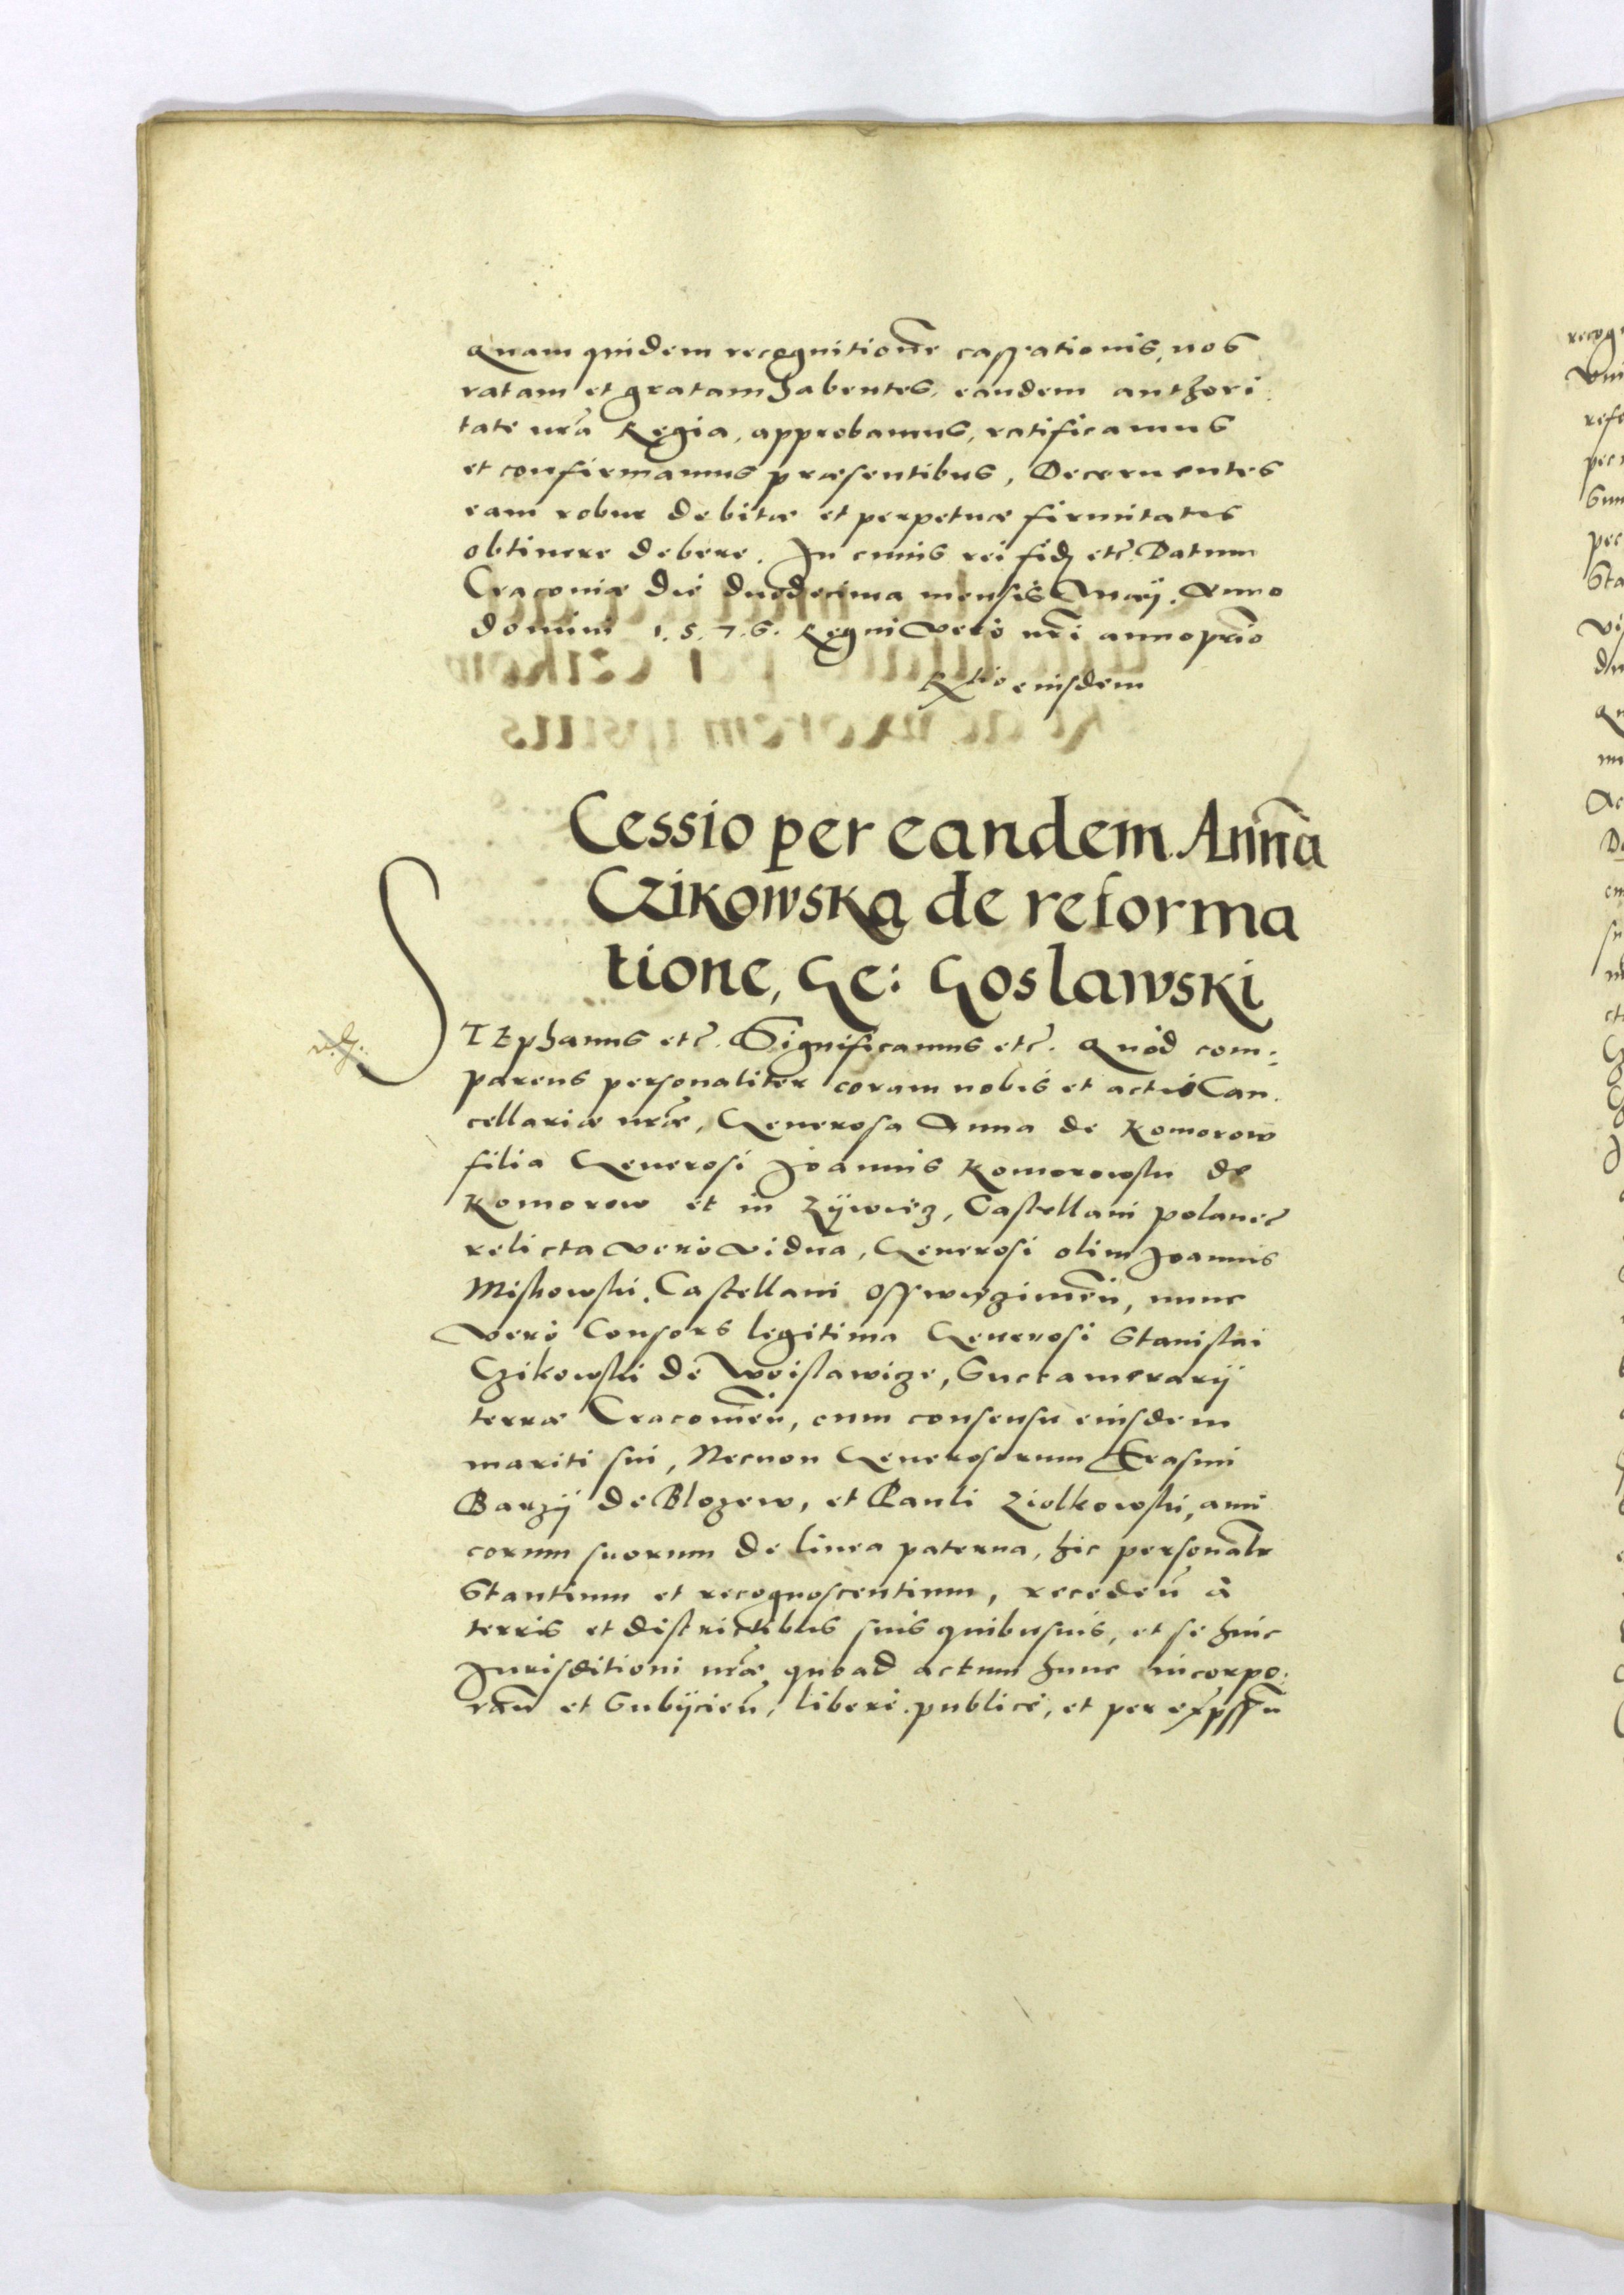 Quam quidem recognitione cassationis, nos
ratam et gratam habentes, eandem authori
tate nrã Regia, approbamus, ratificamus
et confirmamus præsentibus, Decernentes
eam robur debitæ et perpetuæ firmitatis
obtinere debere. In cuius rei fidẽ etc̃. Datum
Cracoviæ die duodecima mensis Maij. Anno
domini 1.5.7.6. Regni vero nr̃i anno prĩo
Rtio eiusdem
Cessio per eandem Annã
Czikowska de reforma
tione, Ge: Goslawski
STEphanus etc̃. Significamus etc̃. Quòd com:
parens personaliter coram nobis et actis Can
cellariæ nræ̃, Generosa Anna de Komorow
filia Generosi Joannis Komorowski de
Komorow et in Zÿwiecz, Castellani polanec̃
relicta vero vidua, Generosi olim Joannis
Miskowski, Castellani Osswyeczimeñ, nunc
vero Consors legitima Generosi Stanislai
Czikowski de Woislawicze, Succamerarij
terræ Cracovieñ, cum consensu eiusdem
mariti sui, Necnon Generosorum Erasmi
Barzij de Blozew, et Pauli Ziolkowski, ami
corum suorum de linea paterna, hic personalr̃
Stantium et recognoscentium, recedeñ à
terris et districtibus suis quibusvis, et se huic
Jurisditioni nræ̃ quoad actum hunc incorpo:
rañ et Subijcieñ, liberè publicè, et per exp̃ssũ